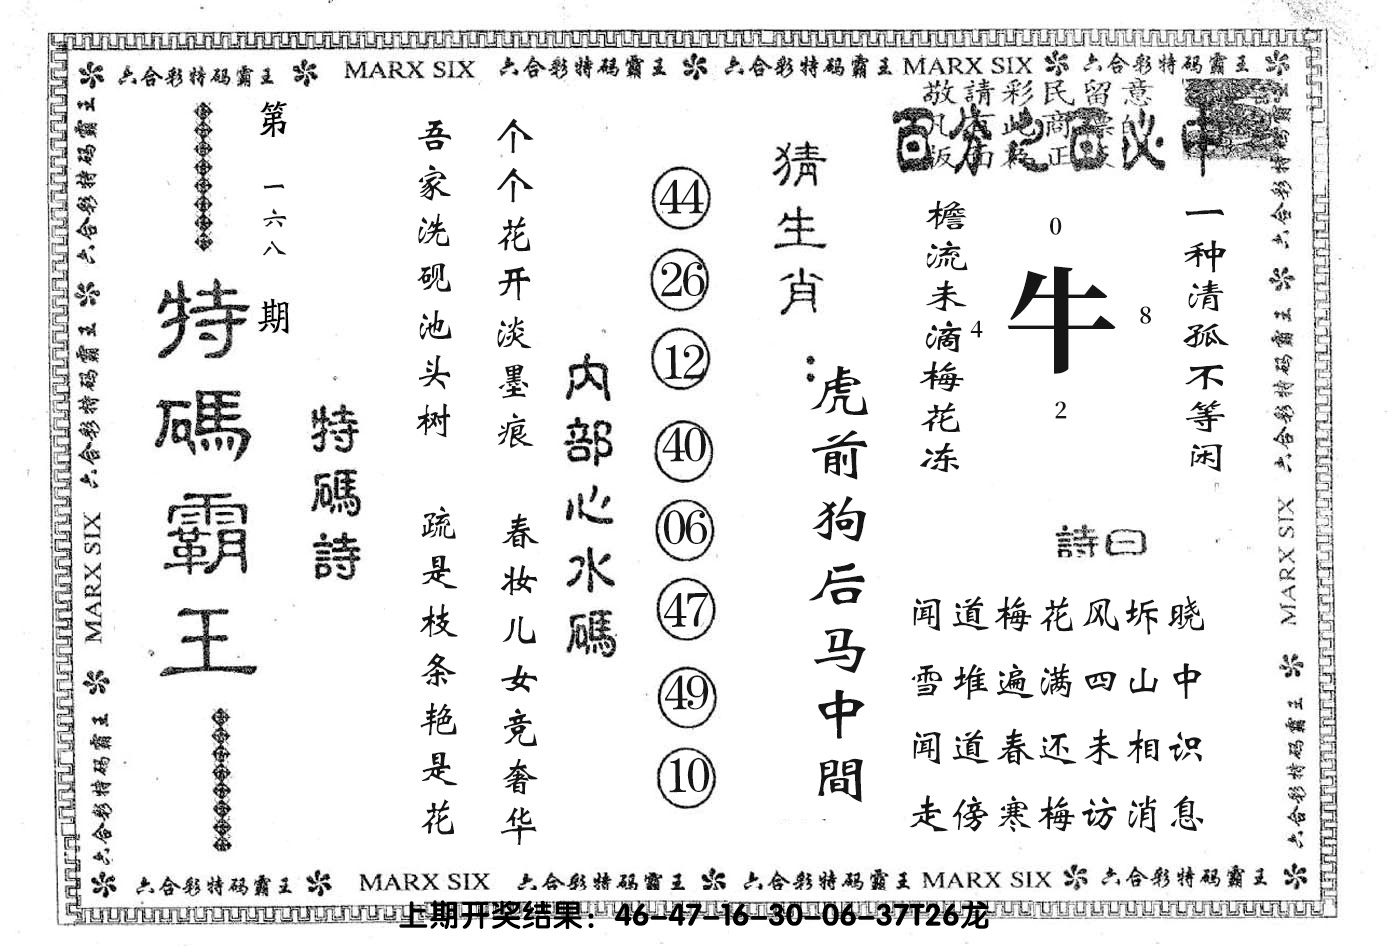 六合彩特码霸王 MARX SIX 六合彩特码霸王 六合彩特码霸王 MARX SIX 六合彩特码霸王
敬請彩民留意
百分之百必中
一种清孤不等闲
檐流未滴梅花冻
0
牛
4
8
2
詩曰
闻道梅花风坼晓
雪堆遍满四山中
闻道春还未相识
走傍寒梅访消息
猜生肖：
虎前狗后马中間
44
26
12
40
06
47
49
10
内部心水碼
个个花开淡墨痕
春妆儿女竞奢华
吾家洗砚池头树
疏是枝条艳是花
特碼詩
第一六八期
特碼霸王
六合彩特码霸王 六合彩特码霸王 MARX SIX 六合彩特码霸王
六合彩特码霸王 六合彩特码霸王 MARX SIX 六合彩特码霸王
六合彩特码霸王 MARX SIX 六合彩特码霸王 六合彩特码霸王 MARX SIX 六合彩特码霸王
上期开奖结果：46-47-16-30-06-37T26龙